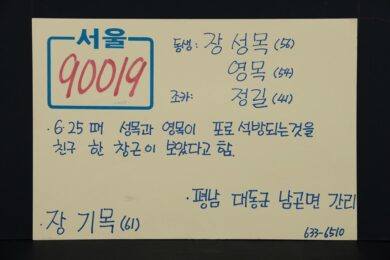 서울
90019
동생: 장 성목 (56)
영목 (54)
조카: 정길 (41)
· 6·25 때 성목과 영목이 포로 석방되는 것을
친구 한 창근이 보았다고 함.
· 평남 대동군 남곤면 간리
· 장 기목 (61)
633-6510